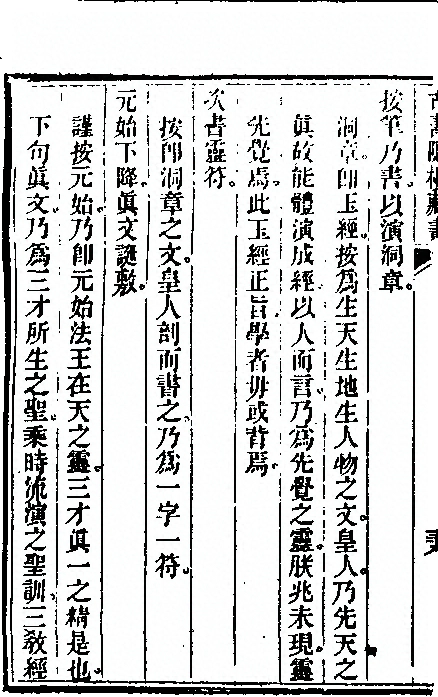 按筆乃書以演洞章。
洞章卽玉經。按爲生天生地生人物之文。皇人。乃先天之
眞。故能體演成經。以人而言。乃爲先覺之靈。朕兆未現。靈
先覺焉。此玉經正旨。學者毋或背焉。
次書靈符。
按卽洞章之文。皇人剖而書之。乃爲一字一符。
元始下降。眞文誕敷。
謹按元始。乃卽元始法王在天之靈。三才眞一之精是也。
下句眞文。乃爲三才所生之聖。乘時流演之聖訓。三教經